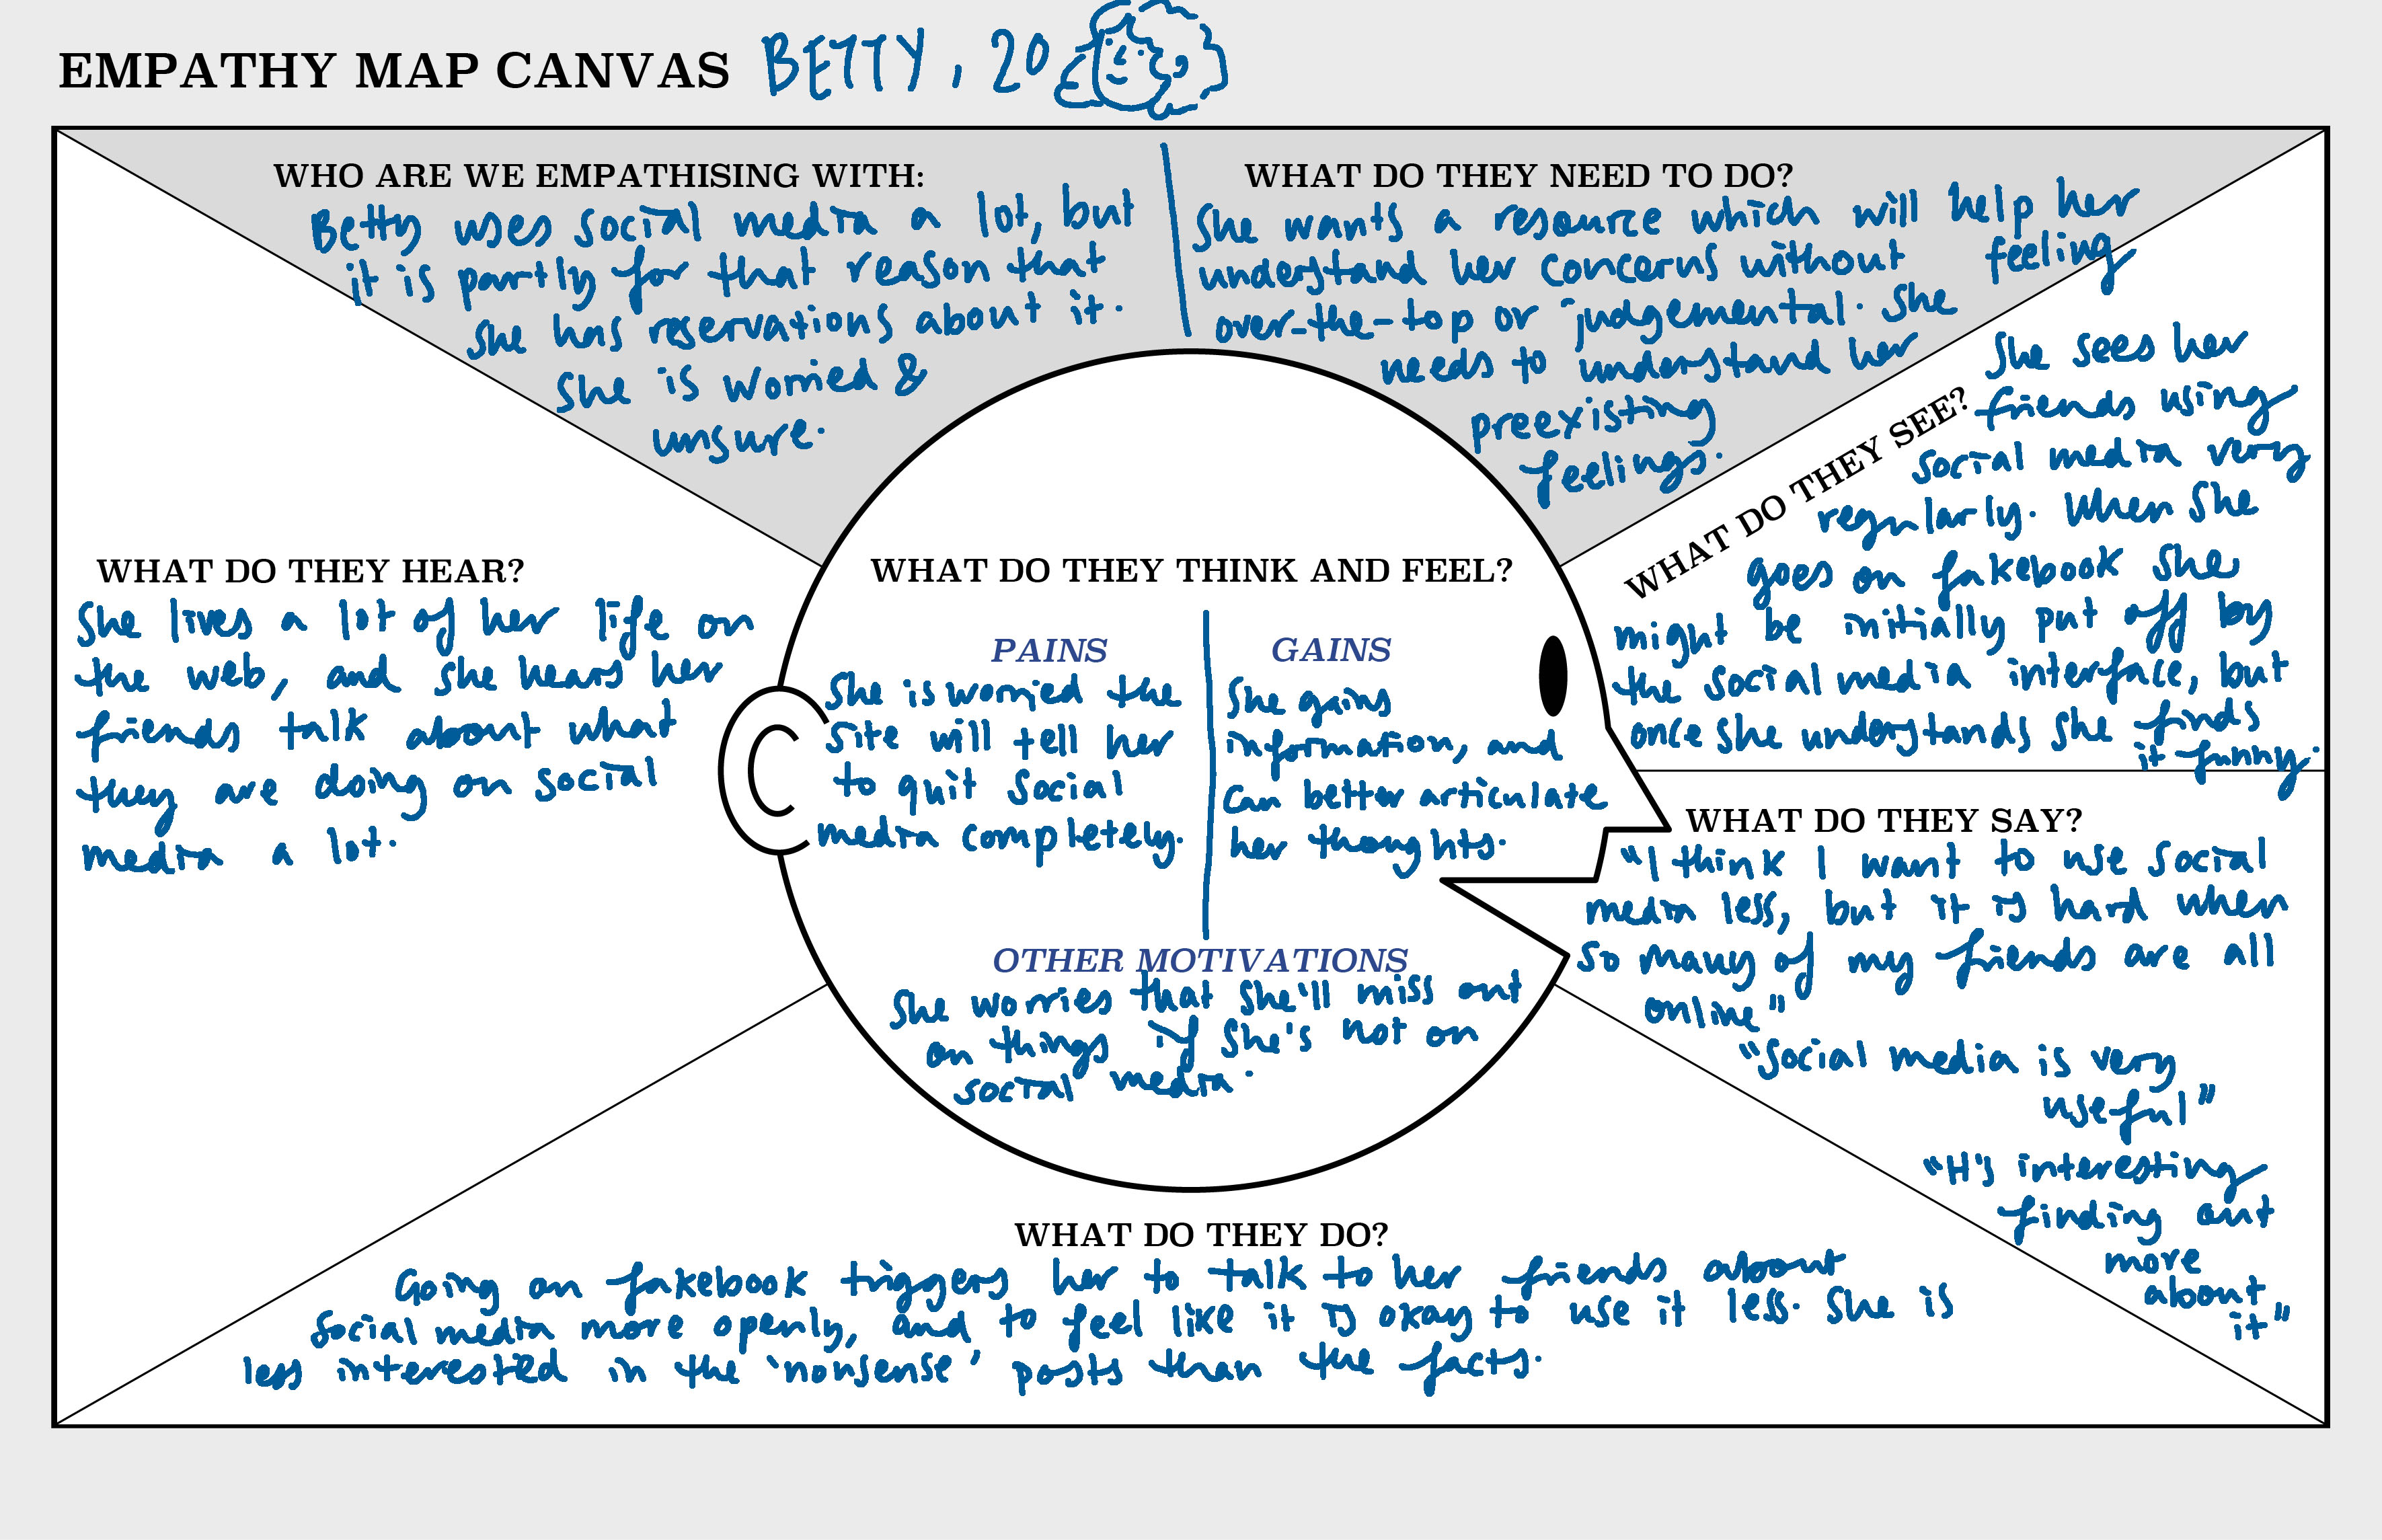 EMPATHY MAP CANVAS BETTY, 20
WHO ARE WE EMPATHISING WITH:
Betty uses social media a lot, but
it is partly for that reason that
she has reservations about it.
She is worried &
unsure.
WHAT DO THEY NEED TO DO?
She wants a resource which will help her
understand her concerns without feeling
over-the-top or judgemental. She
needs to understand her
preexisting
feelings.
WHAT DO THEY SEE?
She sees her
friends using
social media very
regularly. When she
goes on fakebook she
might be initially put off by
the social media interface, but
once she understands she finds
it funny.
WHAT DO THEY HEAR?
She lives a lot of her life on
the web, and she hears her
friends talk about what
they are doing on social
media a lot.
WHAT DO THEY THINK AND FEEL?
PAINS
She is worried the
site will tell her
to quit social
media completely.
GAINS
She gains
information, and
can better articulate
her thoughts.
OTHER MOTIVATIONS
She worries that she'll miss out
on things if she's not on
social media.
WHAT DO THEY SAY?
"I think I want to use social
media less, but it is hard when
so many of my friends are all
online"
"Social media is very
useful"
"It's interesting
finding out
more
about
it"
WHAT DO THEY DO?
Going on fakebook triggers her to talk to her friends about
social media more openly, and to feel like it is okay to use it less. She is
less interested in the 'nonsense' posts than the facts.